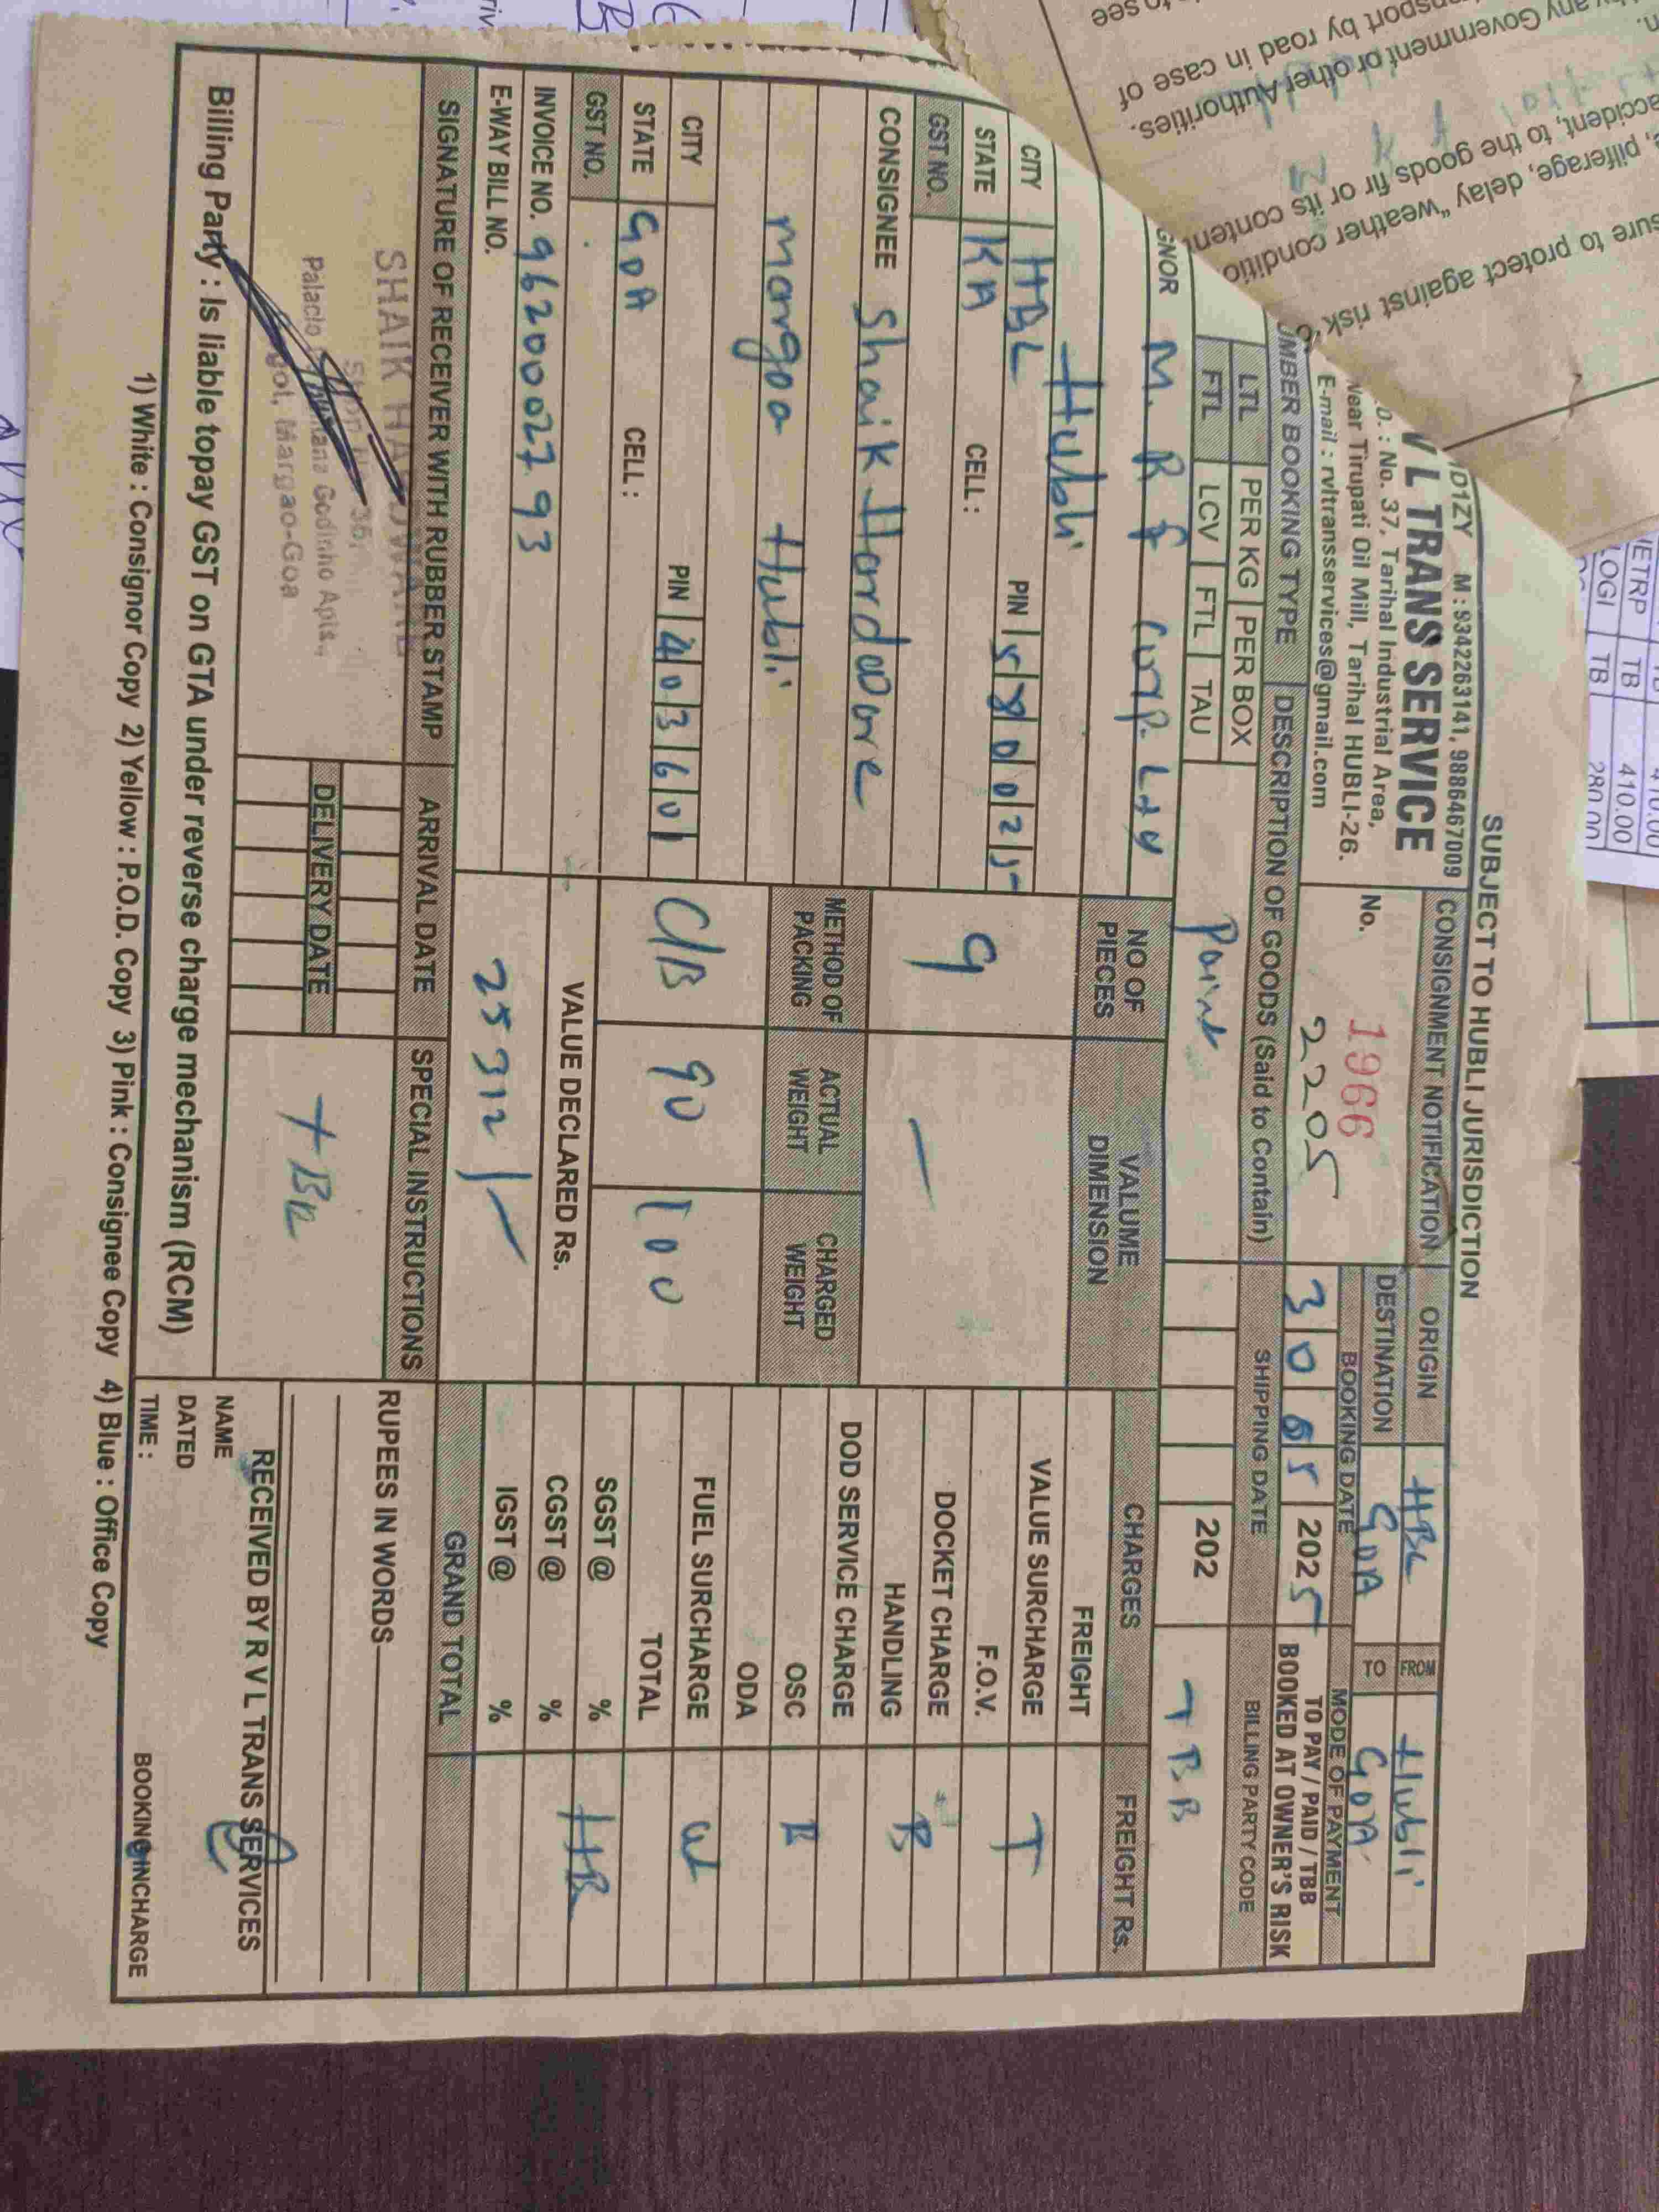 SUBJECT TO HUBLI JURISDICTION
D1ZY M : 9342263141, 9886467009
L TRANS SERVICE
O. : No. 37, Tarihal Industrial Area,
Near Tirupati Oil Mill, Tarihal HUBLI-26.
E-mail : rvltransservices@gmail.com
CONSIGNMENT NOTIFICATION
No. 1966
2205
ORIGIN HBL FROM Hubli
DESTINATION GOA TO GOA
BOOKING DATE MODE OF PAYMENT
30 05 2025 TO PAY / PAID / TBB
BOOKED AT OWNER'S RISK
UMBER BOOKING TYPE DESCRIPTION OF GOODS (Said to Contain) SHIPPING DATE BILLING PARTY CODE
LTL PER KG PER BOX
FTL LCV FTL TAU
Paint
202 TBB
GNOR M. R F Corp. Ltd
Hubli
CITY HBL PIN 580025
STATE KA CELL :
GST NO.
CONSIGNEE Shaik Hardware
margoa Hubli
CITY PIN 403601
STATE GOA CELL :
GST NO.
INVOICE NO. 9620002793
E-WAY BILL NO.
NO OF PIECES VALUME DIMENSION
9 —
METHOD OF PACKING ACTUAL WEIGHT CHARGED WEIGHT
C/B 90 100
VALUE DECLARED Rs.
25312/-
CHARGES FREIGHT Rs.
FREIGHT
VALUE SURCHARGE T
F.O.V.
DOCKET CHARGE B
HANDLING
DOD SERVICE CHARGE
OSC B
ODA
FUEL SURCHARGE at
TOTAL
SGST @ % HB
CGST @ %
IGST @ %
GRAND TOTAL
SIGNATURE OF RECEIVER WITH RUBBER STAMP ARRIVAL DATE SPECIAL INSTRUCTIONS
SHAIK HARDWARE
Godinho Apts.,
Margao-Goa
DELIVERY DATE
RUPEES IN WORDS
RECEIVED BY R V L TRANS SERVICES
NAME
DATED
TIME : BOOKING INCHARGE
Billing Party : Is liable topay GST on GTA under reverse charge mechanism (RCM)
1) White : Consignor Copy 2) Yellow : P.O.D. Copy 3) Pink : Consignee Copy 4) Blue : Office Copy
sure to protect against risk
pilferage, delay "weather conditio
accident, to the goods fir or its content
any Government or other Authorities.
port by road in case of
to see
ETRP TB 410.00
LOGI TB 280.00